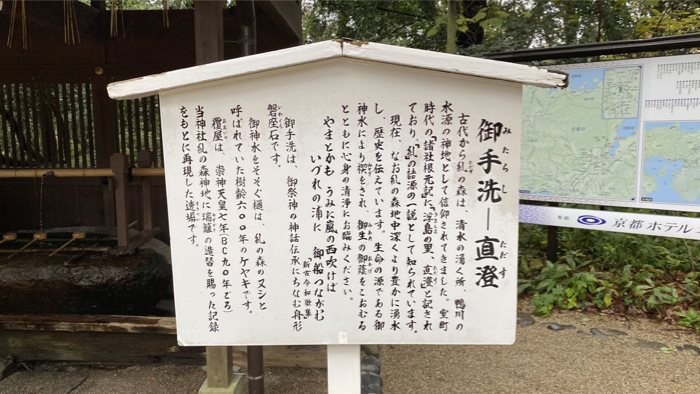 御手洗―直澄
みたらし
ただす
古代から糺の森は、清水の湧く所、鴨川の
水源の神地として信仰されてきました。室町
時代の「諸社根元記」に「浮島の里、直澄」と記され
ており、「糺」の語源の一説として知られています。
現在、なお糺の森地中深くより豊かに湧水
し、歴史を伝えています。生命の源である御
神水により禊をされ、御生の御蔭をこおむる
とともに心身の清浄にお臨みください。
やまとかも うみに嵐の西吹けば
いづれの浦に 御船つながむ
新古今和歌集
御手洗は、御祭神の神話伝承にちなむ舟形
磐座石です。
いわくら
御神水をそそぐ樋は、糺の森のヌシと
呼ばれていた樹齢六００年のケヤキです。
覆屋は、崇神天皇七年(BC九０年ごろ)
当神社糺の森神地に瑞籬の造替を賜った記録
をもとに再現した透塀です。
京都ホテル